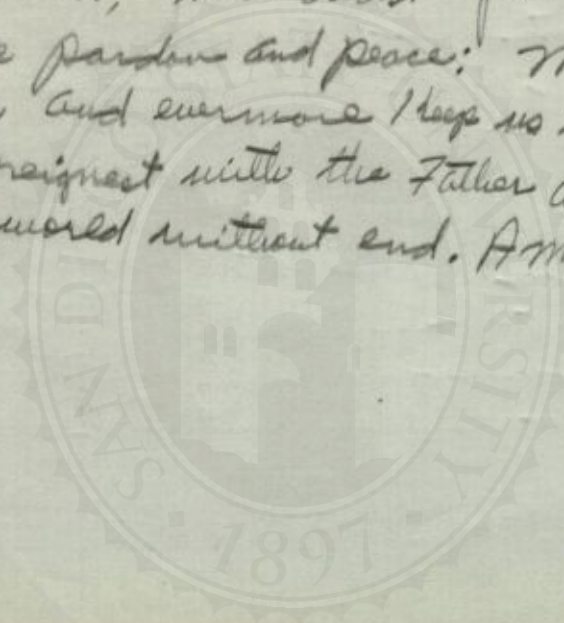 pardon and peace:
and evermore keep us
reignest with the Father
world without end. Am
SAN DIEGO STATE UNIVERSITY
1897